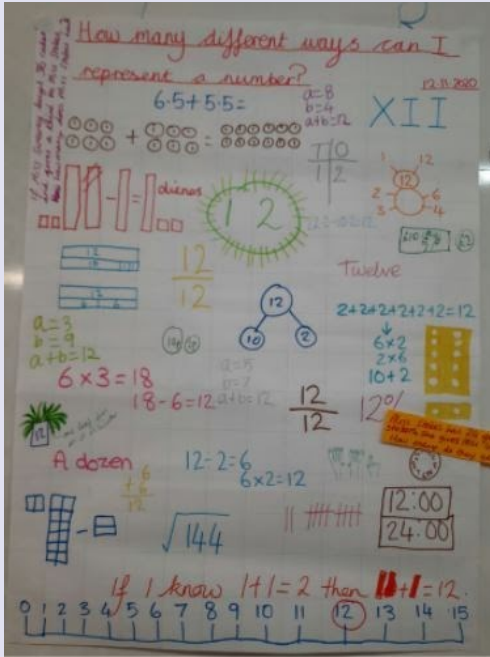 How many different ways can I
represent a number?
12.11.2020
6.5+5.5=
a=8
b=4
a+b=12
XII
+ =
T O
1 2
1 12
12
2 6
3 4
dienes
- =
12
12
12
£10
12
Twelve
12
10 2
2+2+2+2+2+2=12
6×2
2×6
10+2
a=3
b=9
a+b=12
a=5
b=7
a+b=12
6×3=18
18-6=12
12
12
12%
12
A dozen
6
+6
12
12÷2=6
6×2=12
√144
12:00
24:00
If I know 1+1=2 then 11+1=12.
0 1 2 3 4 5 6 7 8 9 10 11 12 13 14 15